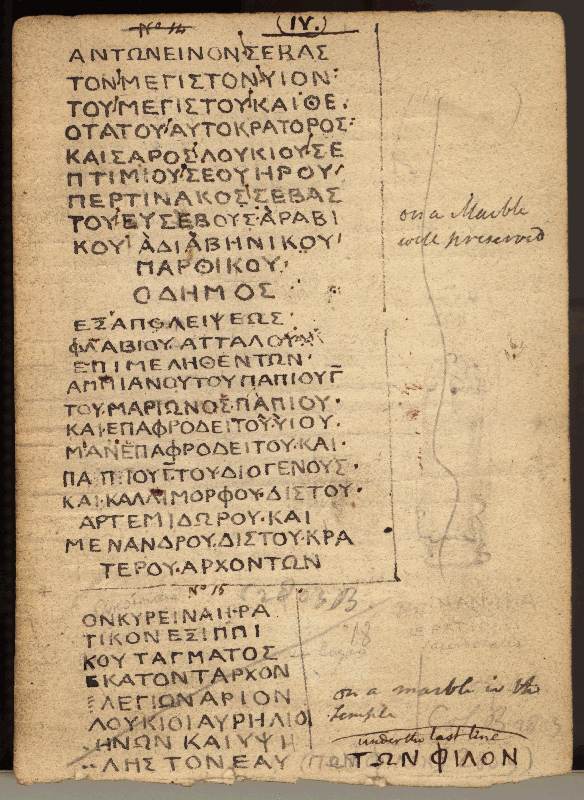 No 14
(IV.)
ΑΝΤΩΝΕΙΝΟΝ ΣΕΒΑΣ
ΤΟΝ ΜΕΓΙΣΤΟΝ ΥΙΟΝ
ΤΟΥ ΜΕΓΙΣΤΟΥ ΚΑΙ ΘΕ
ΟΤΑΤΟΥ ΑΥΤΟΚΡΑΤΟΡΟΣ
ΚΑΙΣΑΡΟΣ ΛΟΥΚΙΟΥ ΣΕ
ΠΤΙΜΙΟΥ ΣΕΟΥΗΡΟΥ
ΠΕΡΤΙΝΑΚΟΣ ΣΕΒΑΣ
ΤΟΥ ΕΥΣΕΒΟΥΣ·ΑΡΑΒΙ
ΚΟΥ ΑΔΙΑΒΗΝΙΚΟΥ
ΠΑΡΘΙΚΟΥ
Ο ΔΗΜΟΣ
on a Marble
well preserved
ΕΞ ΑΠΟΛΕΙΨΕΩΣ
ΦΛΑΒΙΟΥ ΑΤΤΑΛΟΥ
ΕΠΙΜΕΛΗΘΕΝΤΩΝ
ΑΜΜΙΑΝΟΥ ΤΟΥ ΠΑΠΙΟΥ Γ
ΤΟΥ·ΜΑΡΙΩΝΟΣ·ΠΑΠΙΟΥ·
ΚΑΙ·ΕΠΑΦΡΟΔΕΙΤΟΥ ΥΙΟΥ·
ΜΑΝ ΕΠΑΦΡΟΔΕΙΤΟΥ·ΚΑΙ·
ΠΑΠΙΟΥ Γ·ΤΟΥ·ΔΙΟΓΕΝΟΥΣ·
ΚΑΙ·ΚΑΛΛΙΜΟΡΦΟΥ·ΔΙΣ ΤΟΥ·
ΑΡΤΕΜΙΔΩΡΟΥ·ΚΑΙ
ΜΕΝΑΝΔΡΟΥ·ΔΙΣ ΤΟΥ·ΚΡΑ
ΤΕΡΟΥ·ΑΡΧΟΝΤΩΝ
No 15
2803 B.
18
ΟΝ ΚΥΡΕΙΝΑ ΠΡΑ
ΤΙΚΟΝ ΕΞ ΙΠΠΙ
ΚΟΥ ΤΑΓΜΑΤΟΣ
ΕΚΑΤΟΝΤΑΡΧΟΝ
ΛΕΓΙΩΝΑΡΙΟΝ
ΛΟΥΚΙΟΙ ΑΥΡΗΛΙΟΙ
ΗΝΩΝ ΚΑΙ ΥΨΗ
ΛΗΣ ΤΟΝ ΕΑΥ
on a marble in the
Temple
under the last line
ΤΩΝ ΦΙΛΟΝ